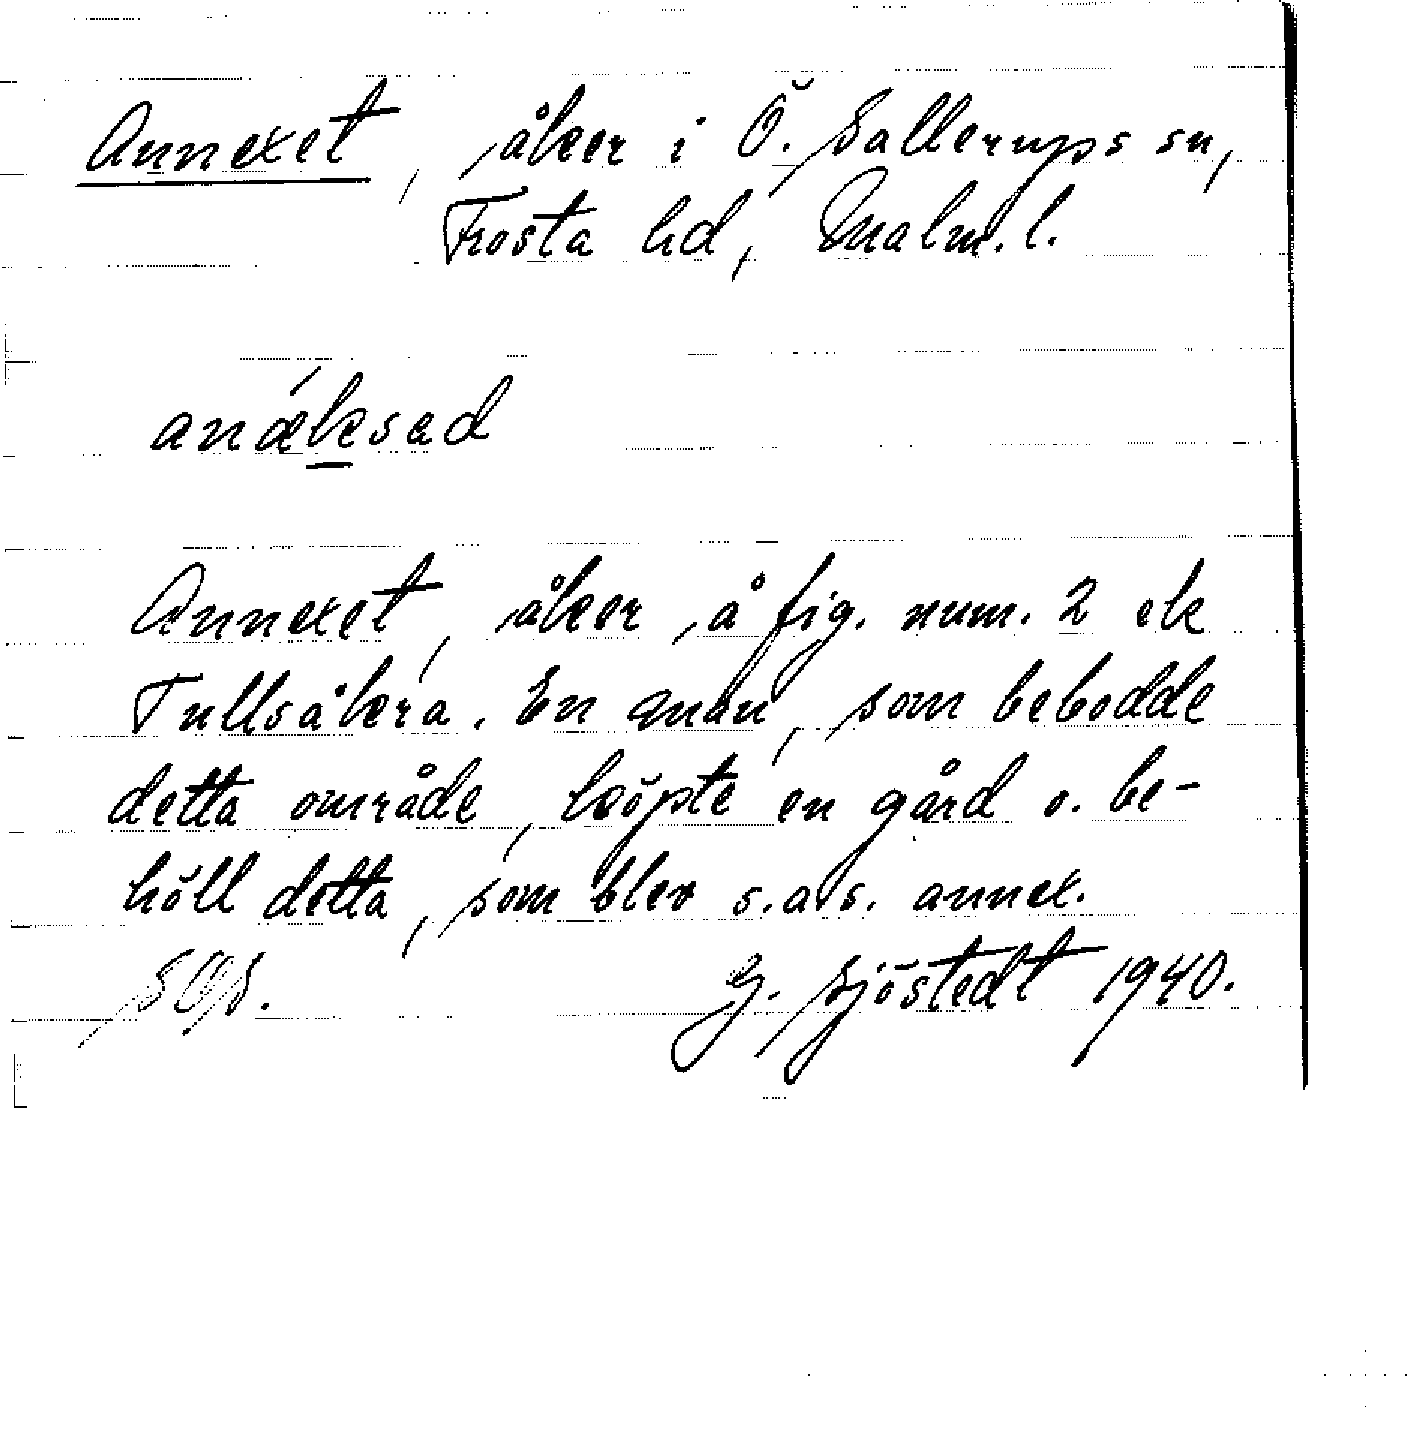 Annexet, åker i Ö. Sallerups sn,
Frosta hd, Malm. l.
anǽksad
Annexet, åker, å fig. num. 2 ek
Tullsåkra. En man, som bebodde
detta område, köpte en gård o. be-
höll detta, som blev s.a.s. annex.
SOS.
G. Sjöstedt 1940.